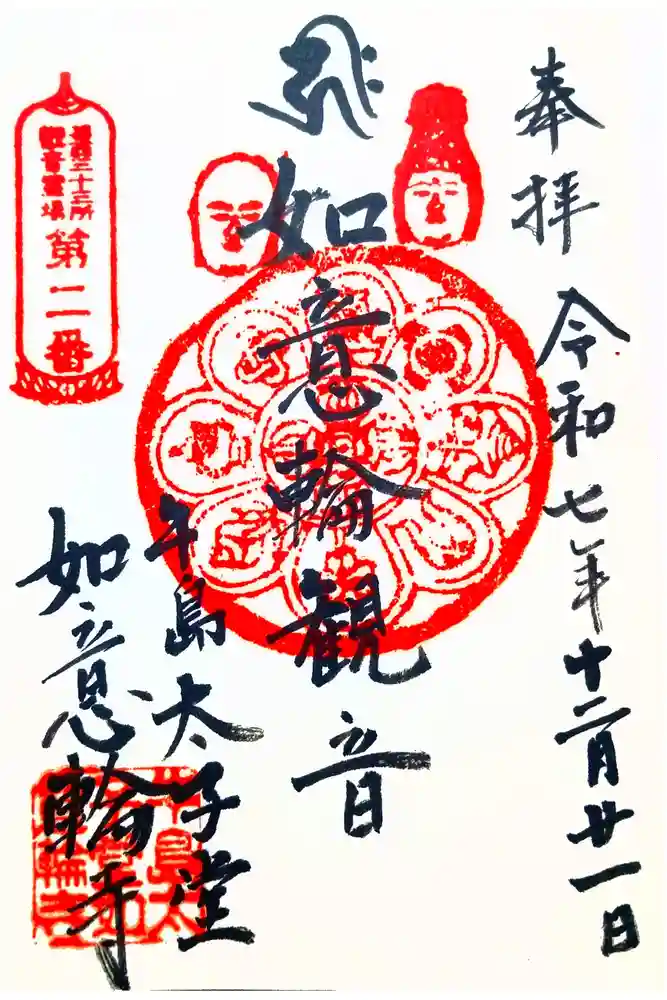 奉拝
令和七年十二月廿一日
如意輪観音
牛島太子堂
如意輪寺
三十三所
観音霊場
第二番